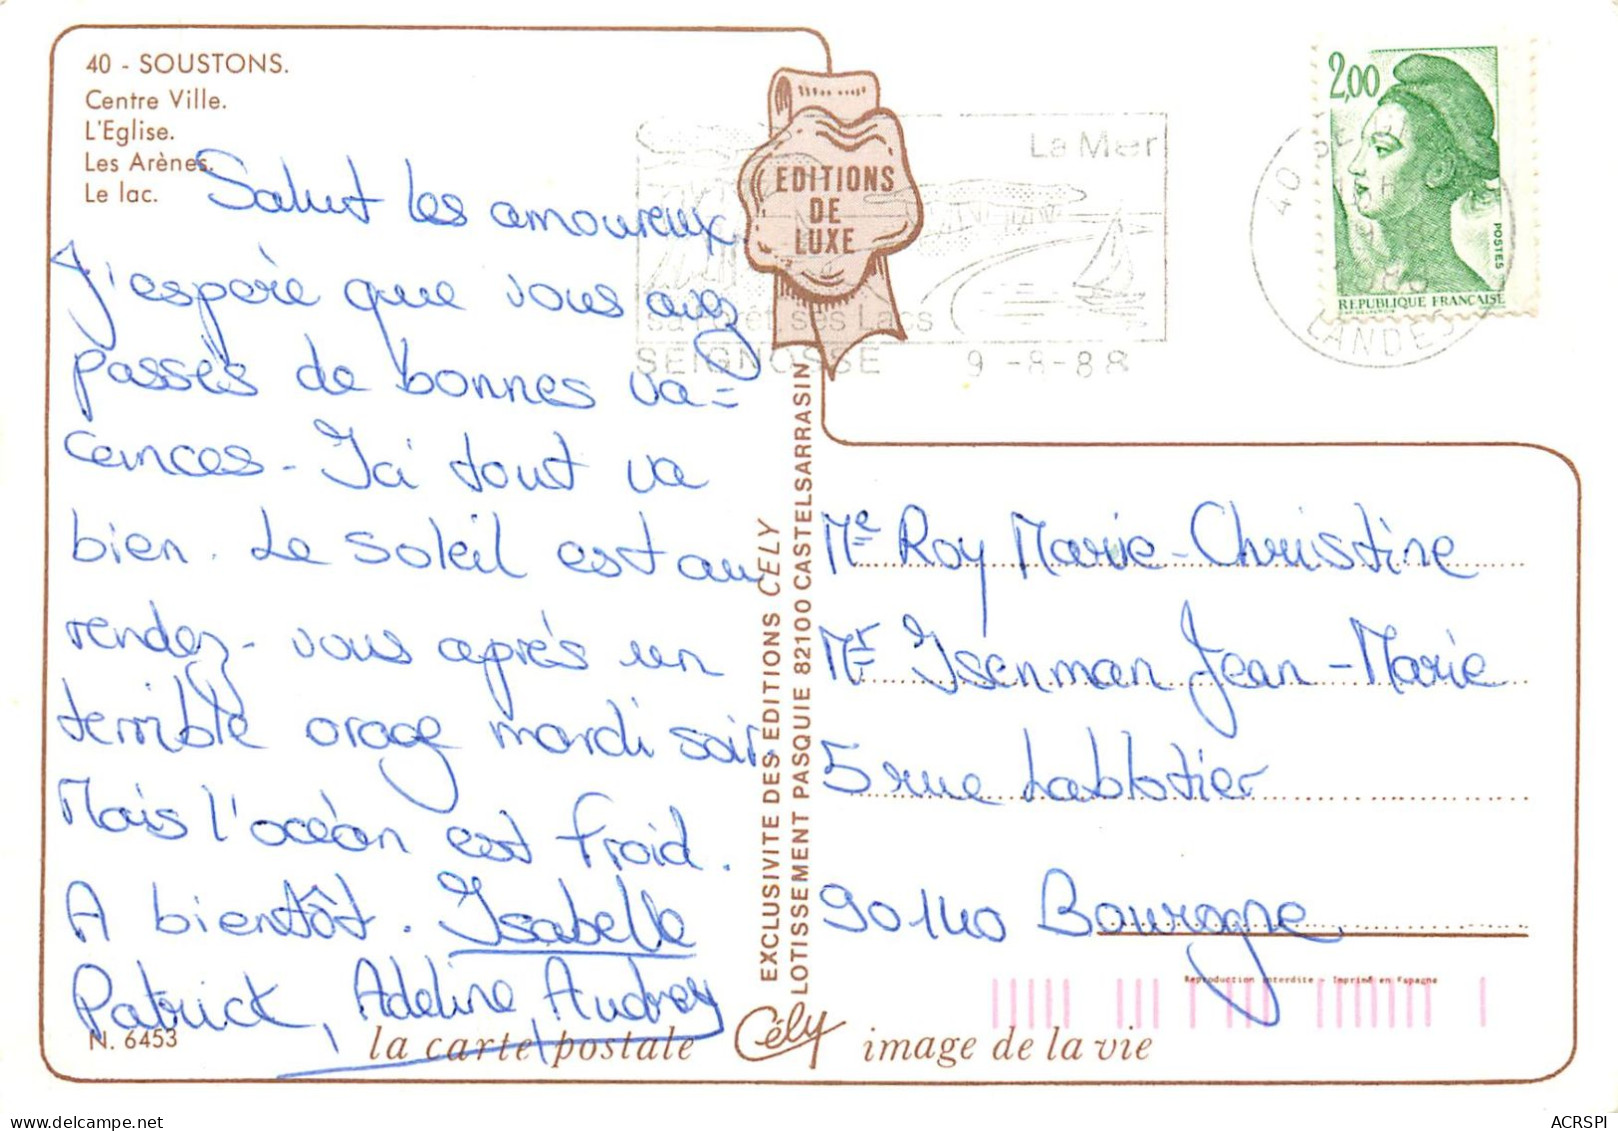 40 - SOUSTONS.
Centre Ville.
L'Eglise.
Les Arènes.
Le lac.
Salut les amoureux
J'espère que vous avez
passés de bonnes va=
cances - Ici tout va
bien. Le soleil est au
rendez-vous après un
terrible orage mardi soir.
Mais l'océan est froid.
A bientôt. Isabelle
Patrick, Adeline, Audrey
N. 6453
la carte postale Cély image de la vie
EDITIONS
DE
LUXE
EXCLUSIVITE DES EDITIONS CELY
LOTISSEMENT PASQUIE 82100 CASTELSARRASIN
La Mer
sa Forêt ses Lacs
SEIGNOSSE 9-8-88
40
LANDES
2,00
POSTES
REPUBLIQUE FRANÇAISE
Me Roy Marie-Christine
Mr Isenman Jean-Marie
5 rue Lablotier
90140 Bourogne
Reproduction interdite - Imprimé en Espagne
ACRSPI